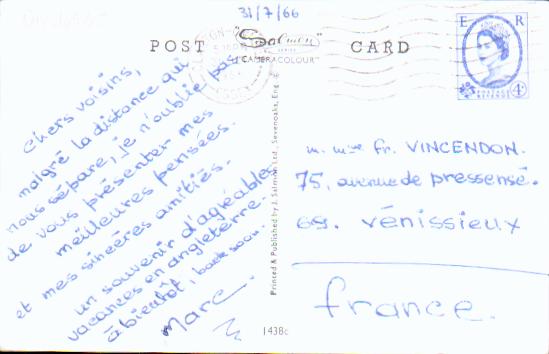 31/7/66
POST "Salmon SERIES CAMERACOLOUR" CARD
E R
4D
POSTAGE REVENUE
chers voisins,
malgré la distance qui
nous sépare, je n'oublie pas
de vous présenter mes
meilleures pensées.
et mes sincères amitiés.
un souvenir d'agréables
vacances en angleterre.
à bientôt, back soon.
Marc.
Printed & Published by J. Salmon Ltd., Sevenoaks, Eng.
1438c
m. mme Fr. VINCENDON.
75, avenue de pressensé.
69. vénissieux
france.